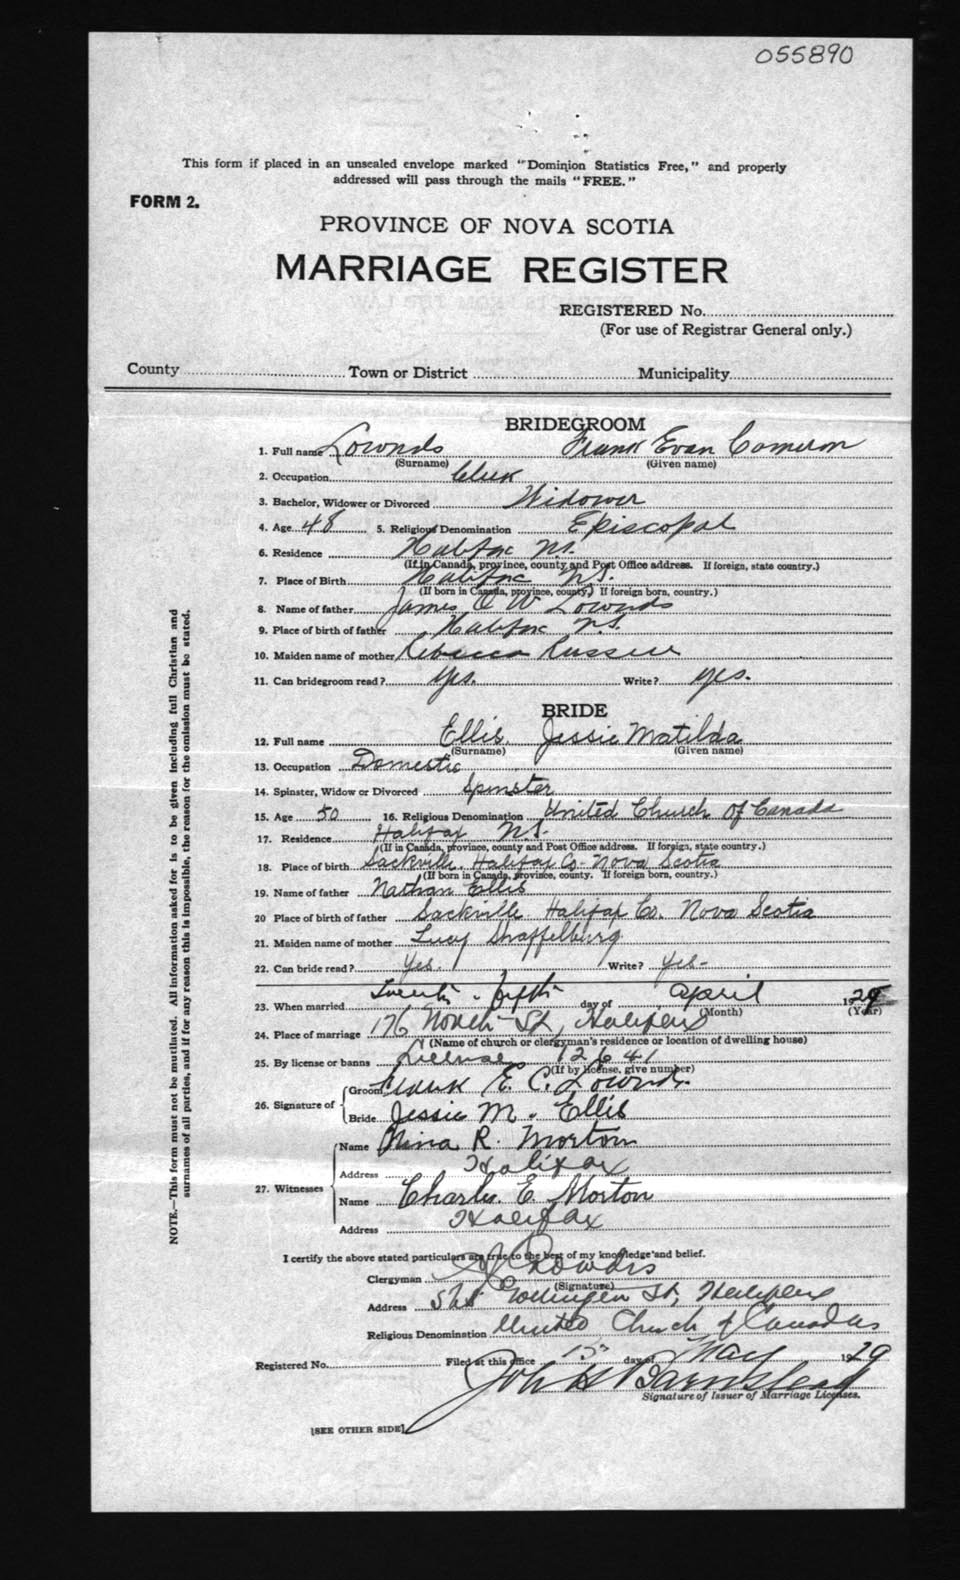 055890
This form if placed in an unsealed envelope marked "Dominion Statistics Free," and properly
addressed will pass through the mails "FREE."
FORM 2.
PROVINCE OF NOVA SCOTIA
MARRIAGE REGISTER
REGISTERED No.
(For use of Registrar General only.)
County Town or District Municipality
BRIDEGROOM
1. Full name Lownds Frank Evan Cameron
(Surname) (Given name)
2. Occupation Clerk
3. Bachelor, Widower or Divorced Widower
4. Age 48 5. Religious Denomination Episcopal
6. Residence Halifax N.S.
(If in Canada, province, county and Post Office address. If foreign, state country.)
7. Place of Birth Halifax N.S.
(If born in Canada, province, county. If foreign born, country.)
8. Name of father James O W Lownds
9. Place of birth of father Halifax N.S.
10. Maiden name of mother Rebecca Russell
11. Can bridegroom read? yes. Write? yes.
BRIDE
12. Full name Ellis Jessie Matilda
(Surname) (Given name)
13. Occupation Domestic
14. Spinster, Widow or Divorced Spinster
15. Age 50 16. Religious Denomination United Church Of Canada
17. Residence Halifax N.S.
(If in Canada, province, county and Post Office address. If foreign, state country.)
18. Place of birth Sackville Halifax Co- Nova Scotia
(If born in Canada, province, county. If foreign born, country.)
19. Name of father Nathan Ellis
20 Place of birth of father Sackville Halifax Co. Nova Scotia
21. Maiden name of mother Lucy Shaffelburg
22. Can bride read? Yes. Write? Yes-
23. When married Twenty-fifth day of April 1929
(Month) (Year)
24. Place of marriage 176 North St, Halifax
(Name of church or clergyman's residence or location of dwelling house)
25. By license or banns License 12641
(If by license, give number)
26. Signature of Groom Frank E. C. Lownds
Bride Jessie M. Ellis
27. Witnesses Name Nina R. Morton
Address Halifax
Name Charles E. Morton
Address Halifax
I certify the above stated particulars are true to the best of my knowledge and belief.
Clergyman
(Signature)
Address St, Halifax
Religious Denomination United Church of Canada
Registered No. Filed at this office 15 day of May 1929
John H Barnstead
Signature of Issuer of Marriage Licenses.
[SEE OTHER SIDE]
NOTE.—This form must not be mutilated. All information asked for is to be given including full Christian and
surnames of all parties, and if for any reason this is impossible, the reason for the omission must be stated.